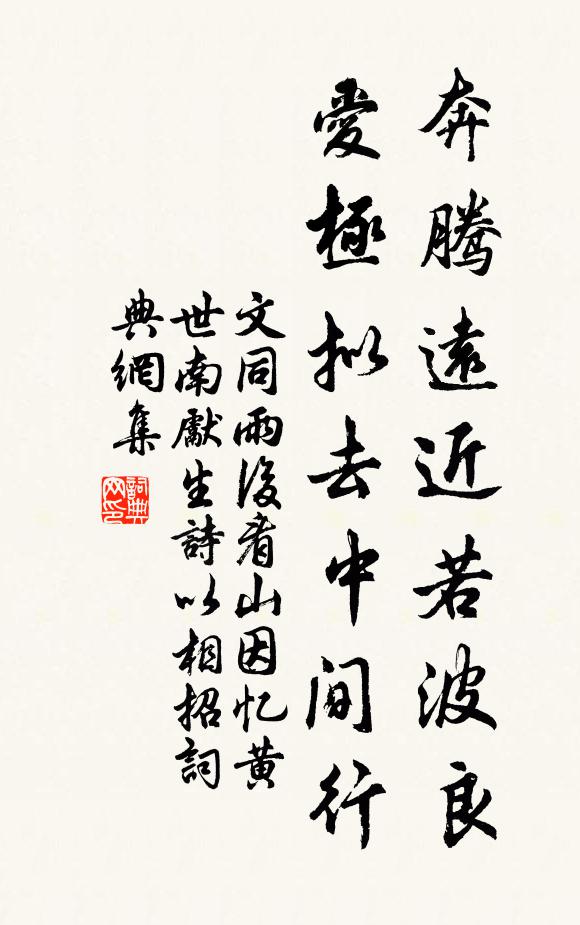 奔騰遠近若波良
愛極拟去中間行
文同雨後看山因忆黄
世南獻生詩以相招詞
典網集
詞典网印